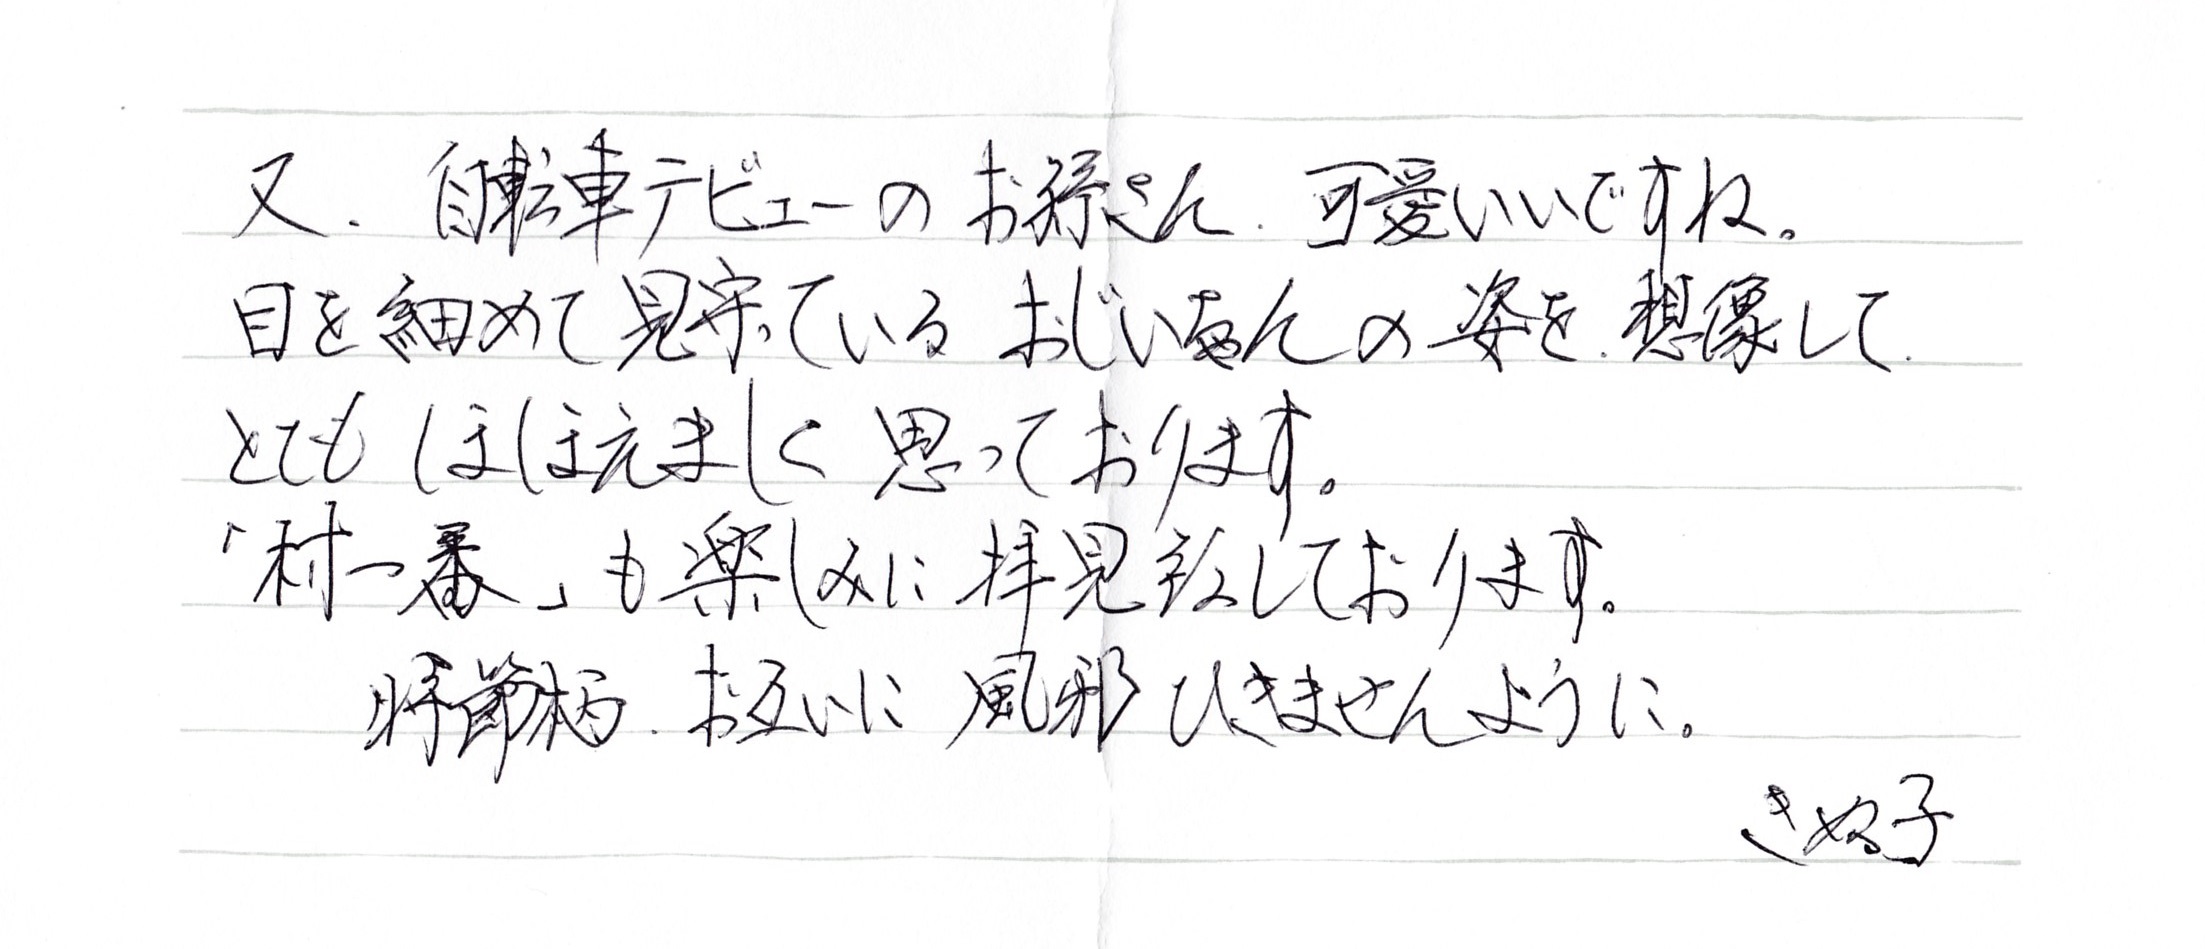 又、自転車デビューのお孫さん、可愛いいですね。
目を細めて見守っているおじいちゃんの姿を、想像して、
とてもほほえましく思っております。
「村一番」も楽しみに拝見致しております。
時節柄、お互いに風邪ひきませんように。
きぬ子